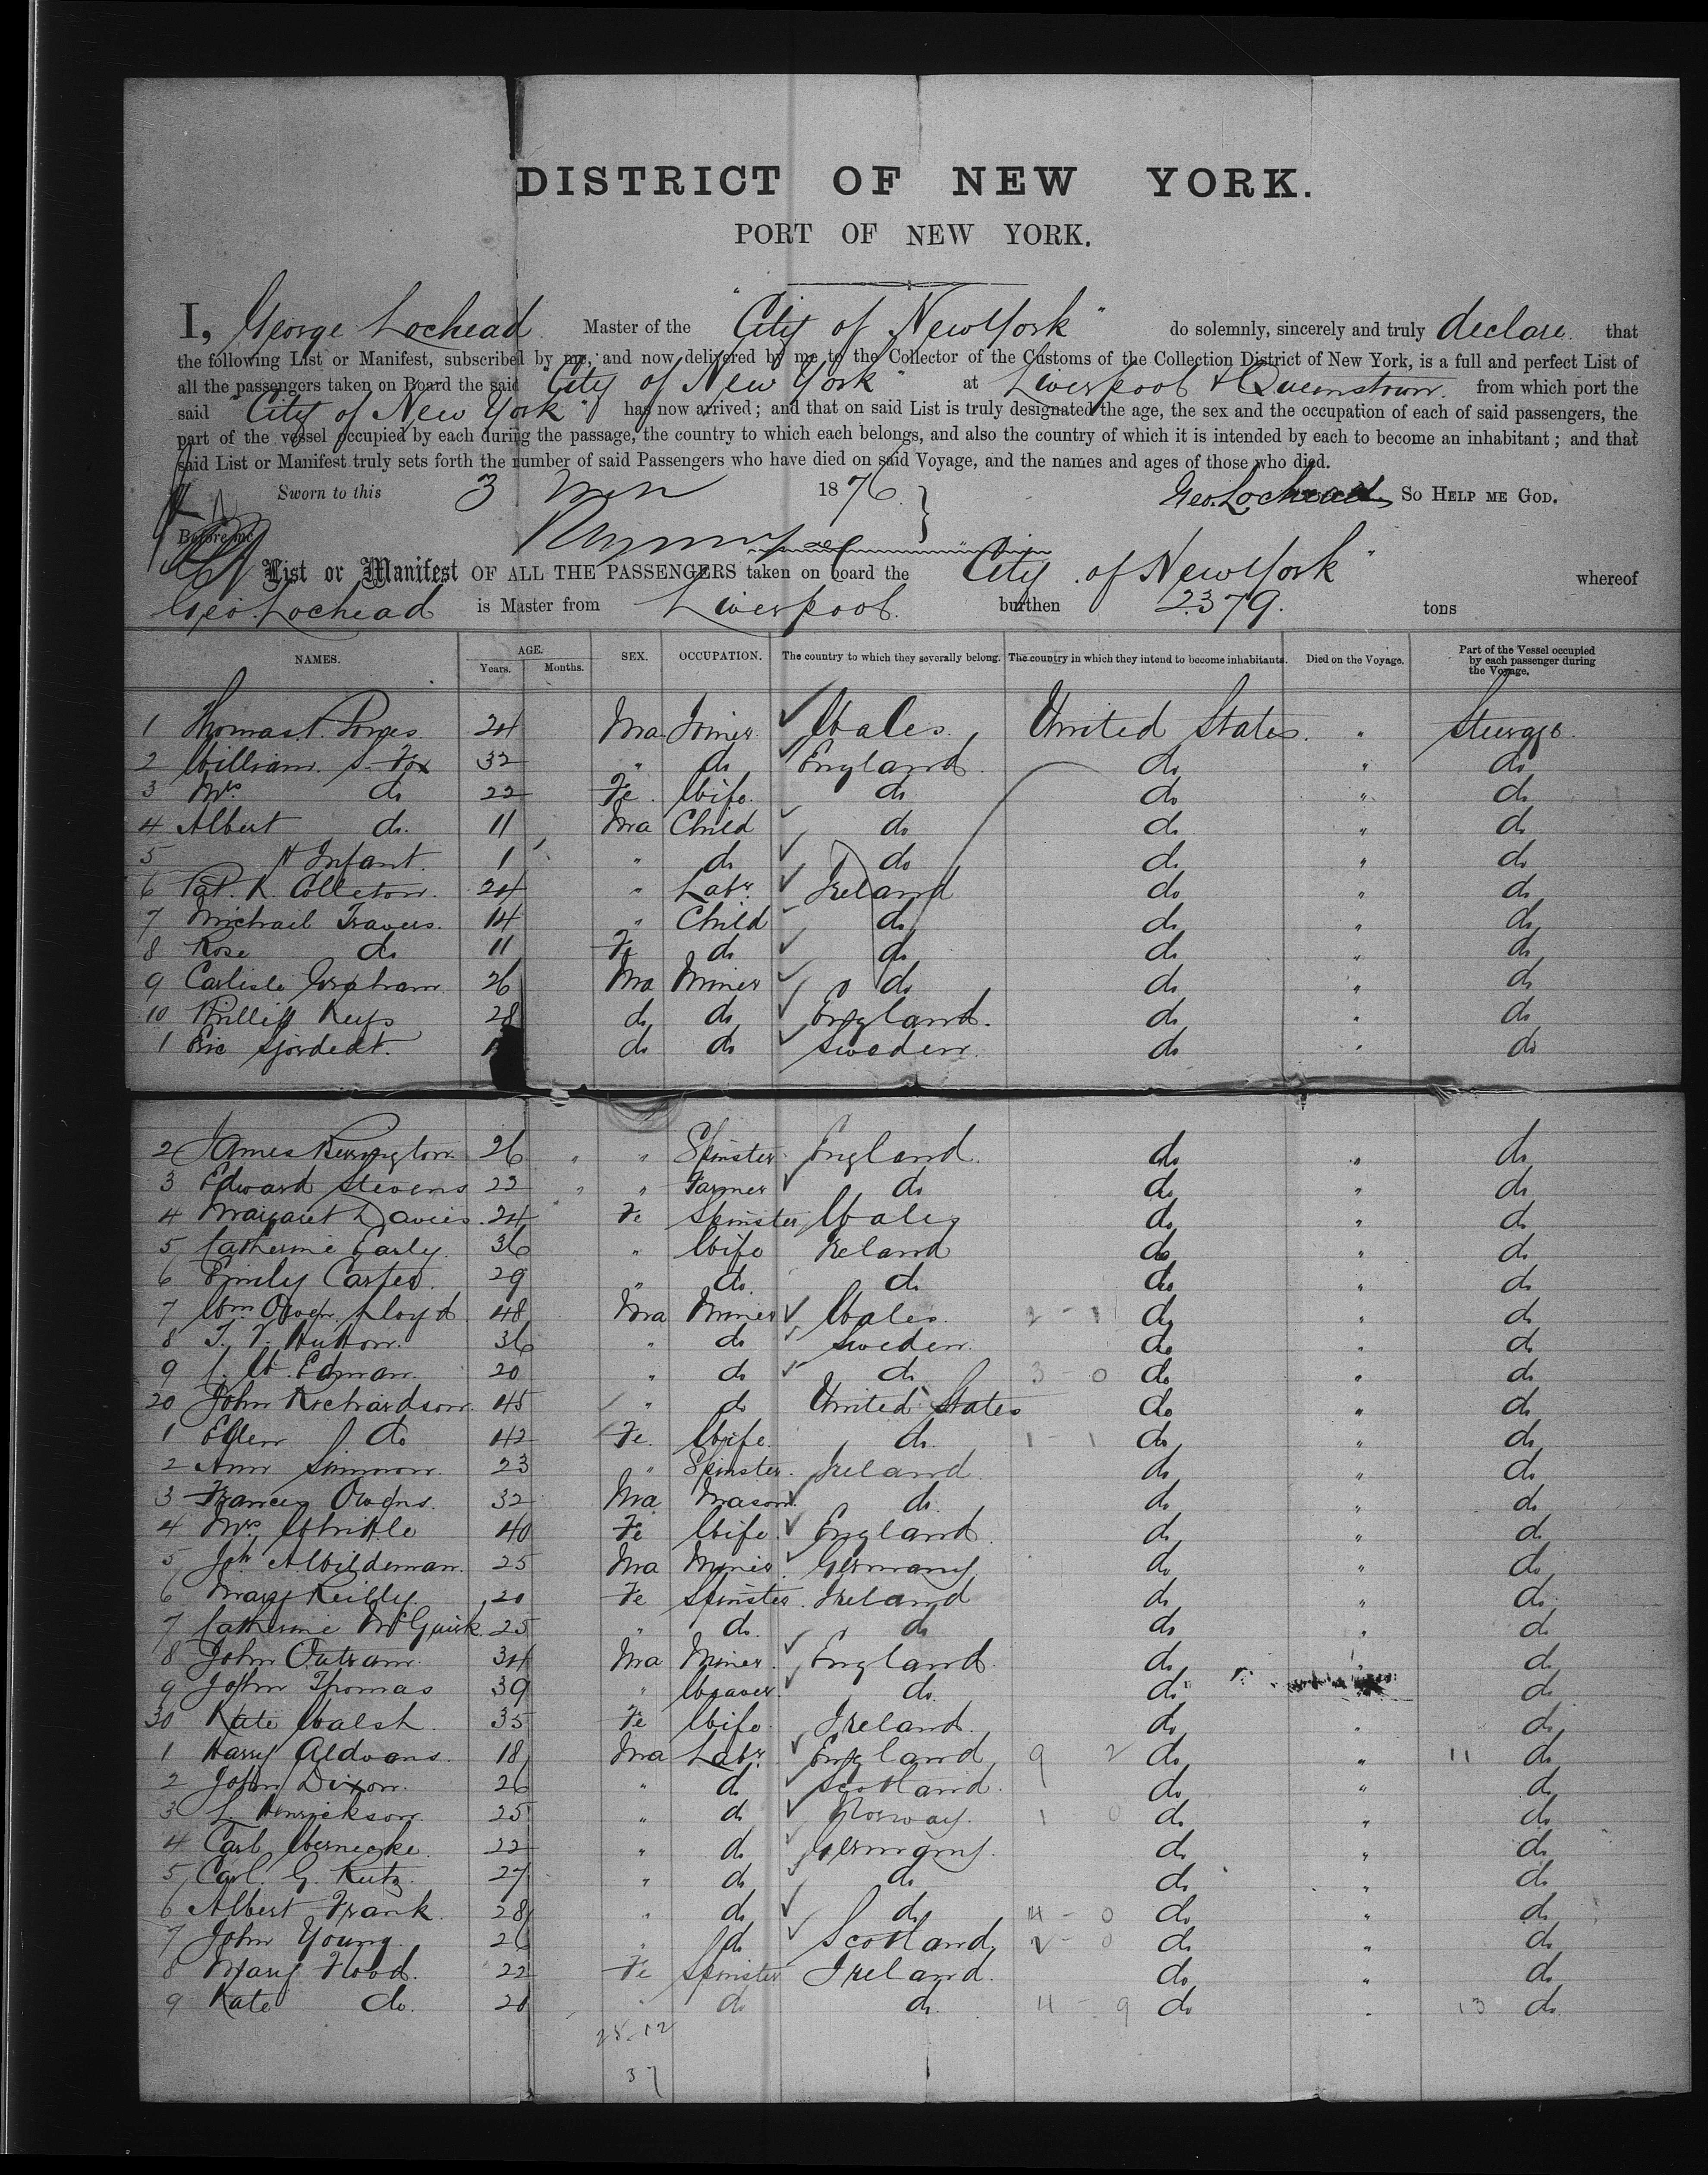 DISTRICT OF NEW YORK.
PORT OF NEW YORK.
I, George Lochead Master of the "City of New York" do solemnly, sincerely and truly declare that
the following List or Manifest, subscribed by me, and now delivered by me to the Collector of the Customs of the Collection District of New York, is a full and perfect List of
all the passengers taken on Board the said "City of New York" at Liverpool & Queenstown. from which port the
said "City of New York" has now arrived; and that on said List is truly designated the age, the sex and the occupation of each of said passengers, the
part of the vessel occupied by each during the passage, the country to which each belongs, and also the country of which it is intended by each to become an inhabitant; and that
said List or Manifest truly sets forth the number of said Passengers who have died on said Voyage, and the names and ages of those who died.
Sworn to this 3 1876 Geo. Lochead SO HELP ME GOD.
Before me
List or Manifest OF ALL THE PASSENGERS taken on board the City of New York" whereof
Geo. Lochead is Master from Liverpool. burthen 2379. tons
NAMES. AGE. Years. Months. SEX. OCCUPATION. The country to which they severally belong. The country in which they intend to become inhabitants. Died on the Voyage. Part of the Vessel occupied by each passenger during the Voyage.
1 Thomas 24 Ma Joiner Wales. United States. " Steerage
2 William S. Fox 32 " do England do " do
3 Mrs do 22 Fe Wife do do " do
4 Albert do. 11 Ma Child do do " do
5 Infant 1 " do do do " do
6 Pat. Colleton. 24 " Labr. Ireland do " do
7 Michail Travers. 14 " Child do do " do
8 Rose do 11 Fe do do do " do
9 Carlisle Graham 26 Ma Miner do do " do
10 Phillip Keys 28 do do England. do " do
1 Eric do do Sweden. do " do
2 James 26 " " Spinster England. do " do
3 Edward Stevens 22 " " Farmer do do " do
4 Margaret Davies. 24 Fe Spinster Wales do " do
5 Catherine Early. 36 " Wife Ireland do " do
6 Emily Carter. 29 " do. do do " do
7 Wm. Owen Lloyd 48 Ma Miner Wales. 2 - 1 do " do
8 Hutton. 36 " do Sweden. do " do
9 Edman 20 " do do 3 - 0 do " do
20 John Richardson 45 " do United States do " do
1 Ellen do 42 Fe. Wife. do. 1 - 1 do " do
2 Ann 23 " Spinster. Ireland. do " do
3 Francis Owens. 32 Ma Mason do. do " do
4 Mrs. Whittle 40 Fe Wife. England. do " do
5 Wildeman. 25 Ma Miner. Germany do " do
6 Mary Reilly. 20 Fe Spinster. Ireland do " do
7 Catherine McGuirk. 25 " do. do do " do
8 John Outram. 34 Ma Miner. England. do " do
9 John Thomas 39 " Weaver. do. do do
30 Kate Walsh. 35 Fe Wife. Ireland. do " do
1 Harry 18 Ma Labr. England 9 2 do " 11 do
2 John Dixon. 26 " do Scotland. do " do
3 L. Henrickson. 25 " do Norway. 1 0 do " do
4 Carl Wernecke. 22 " do Germany. do " do
5 Carl. G. Kutz. 27 " do do do " do
6 Albert Frank. 28 " do do 4 - 0 do " do
7 John Young. 26 " do Scotland. 2 - 0 do " do
8 Mary Flood. 22 Fe Spinster Ireland. do " do
9 Kate do. 20 " do do. 4 - 9 do " 13 do.
25-12
37